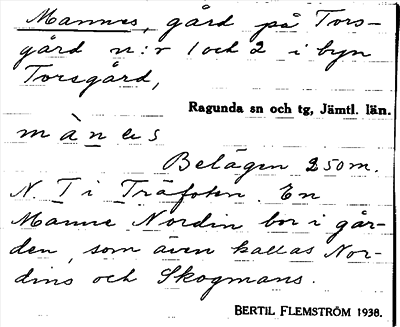 Mannes, gård på Tors-
gård n:r 1 och 2 i byn
Torsgård,
Ragunda sn och tg, Jämtl. län.
m à n e s
Belägen 250 m.
N. T i Träfoten. En
Manne Nordin bor i går-
den, som även kallas Nor-
dins och Skogmans.
BERTIL FLEMSTRÖM 1938.